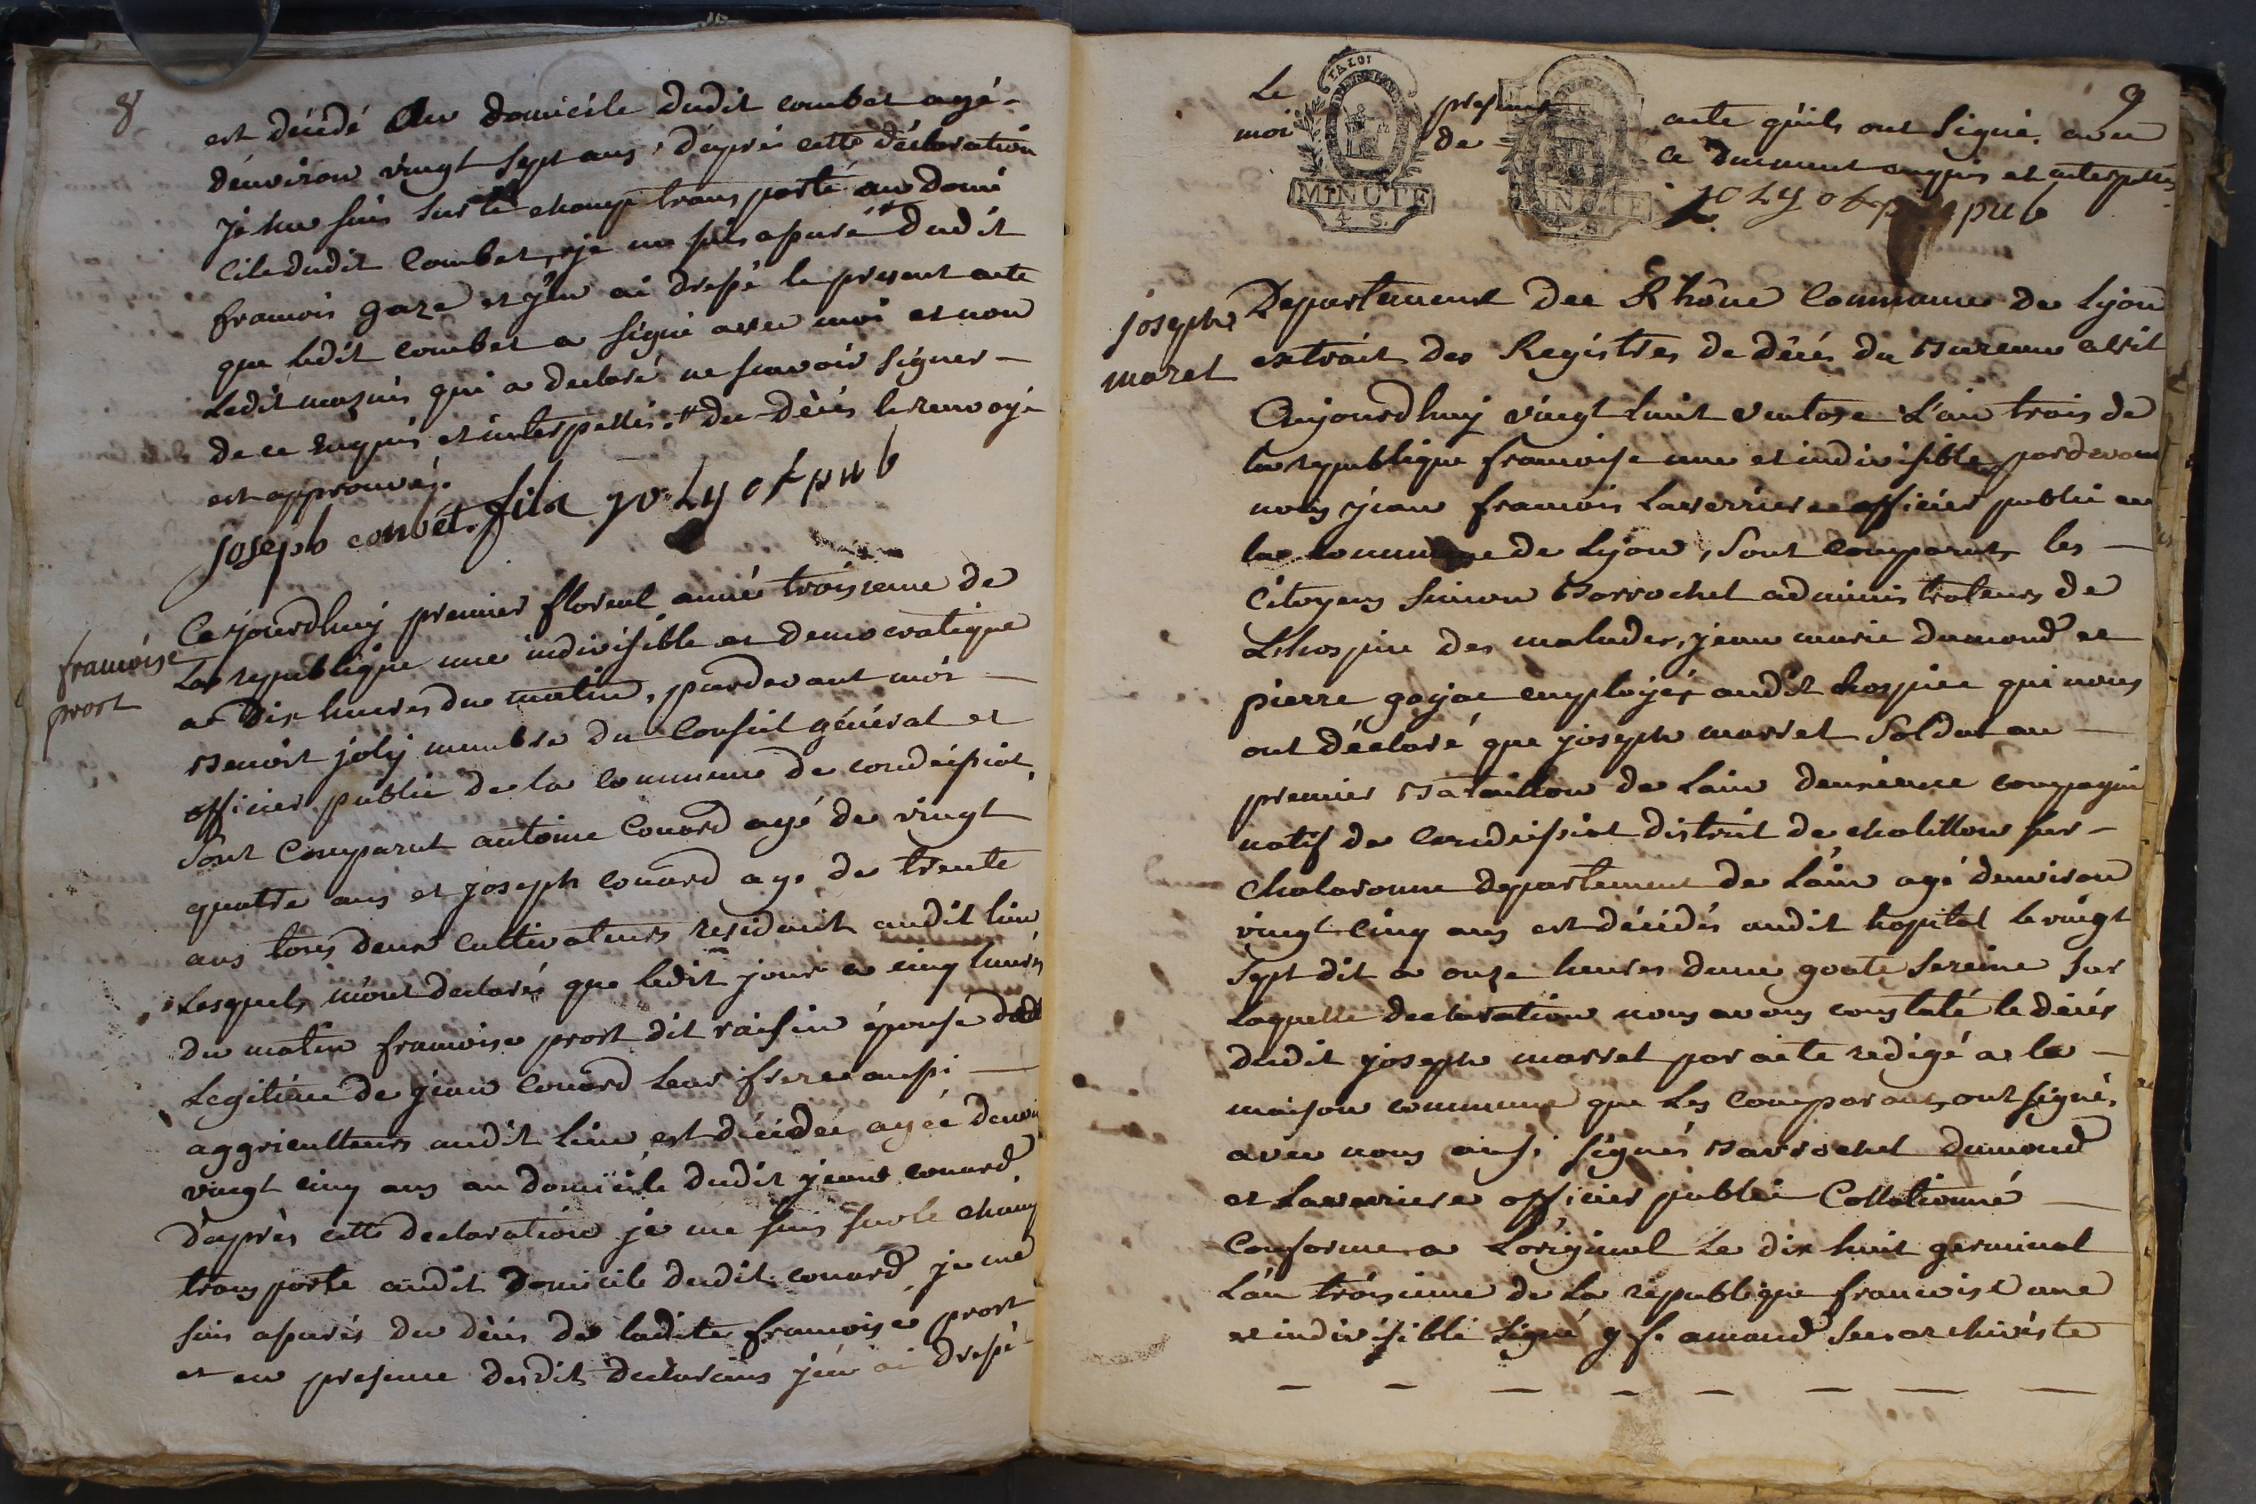 8
est décedé Au domicile dudit combet agé-
dénviron vingt sept ans, dáprés cette déclaration
je me suis sur le champ transporté au domi
cile dudit Combet, je me suis asuré # dudit
francois gaze et j'en ai dressé le present acte
que ledit combet a signé avec moi et non
Ledit qui a declaré ne scavoir signer —
de ce enquis et interpellés. # du décés le renvoyé
est approuvéz.
joseph conbét fils joly of pub
francoise
prost
Cejourdhuy premier floreal année troisieme de
La republique une indivisible et democratique
a dix heures du matin, pardevant moi —
Benoit joly membre du Conseil général et
officier public de la Commune de condeissiat,
Sont Comparut antoine Couard agé de vingt
quatre ans et joseph Couard agé de trente
ans tous deux cultivateurs residant audit lieu
Lesquels m'ont declarés que ledit jour a cinq heures
du matin francoise prost dit raisin épouse
Legitime de jean Couard Leur frere aussi —
aggriculteurs audit Lieu est décidée agée
vingt cinq ans au domicile dudit jean couard
d'aprés cette declaration je me suis sur le champ
transporte audit Domicile dudit couard je me
suis asurés du décés de ladite francoise prost
et en presence desdits declarans j'en ai dressé
LA LOI
MINUTE
4. S.
MINUTE
9
Le present acte quils ont Signé avec
moi de ce enquis et interpellés
joly of pub
joseph
maret
Departement du Rhône Commune de Lyon
extrait des Registres de décés du Bureau civil
Aujourdhuy vingt huit ventose L'an trois de
la republique francoise une et indivisible, pardevant
nous jean francois Laverriere officier public en
la commune de Lyon, Sont comparuts les —
Citoyens Simon Barrochet administrateurs de
L'hospice des malades, jean marie dumond et
pierre gayac employés audit hospice qui nous
ont déclaré que joseph marret Soldat au —
premier Bataillon de Lain deuxieme compagnie
natif de Condeissiat district de chatillon sur-
Chalaronne departement de L'ain agé denviron
vingt Cinq ans est décédés audit hopital Le vingt
Sept dit a onze heures dune goute Sereine sur
Laquelle declaration nous avons constaté le décés
dudit joseph marret par acte redigé a la —
maison commune que Les Comparants ont signé,
avec nous ainsi signés Barrochet dumond
et Laverriere officier public Collationné —
Conforme a L'original Le dix huit germinal
L'an troisieme de La republique francoise une
et indivisible signé j f. amand Sec. archiviste